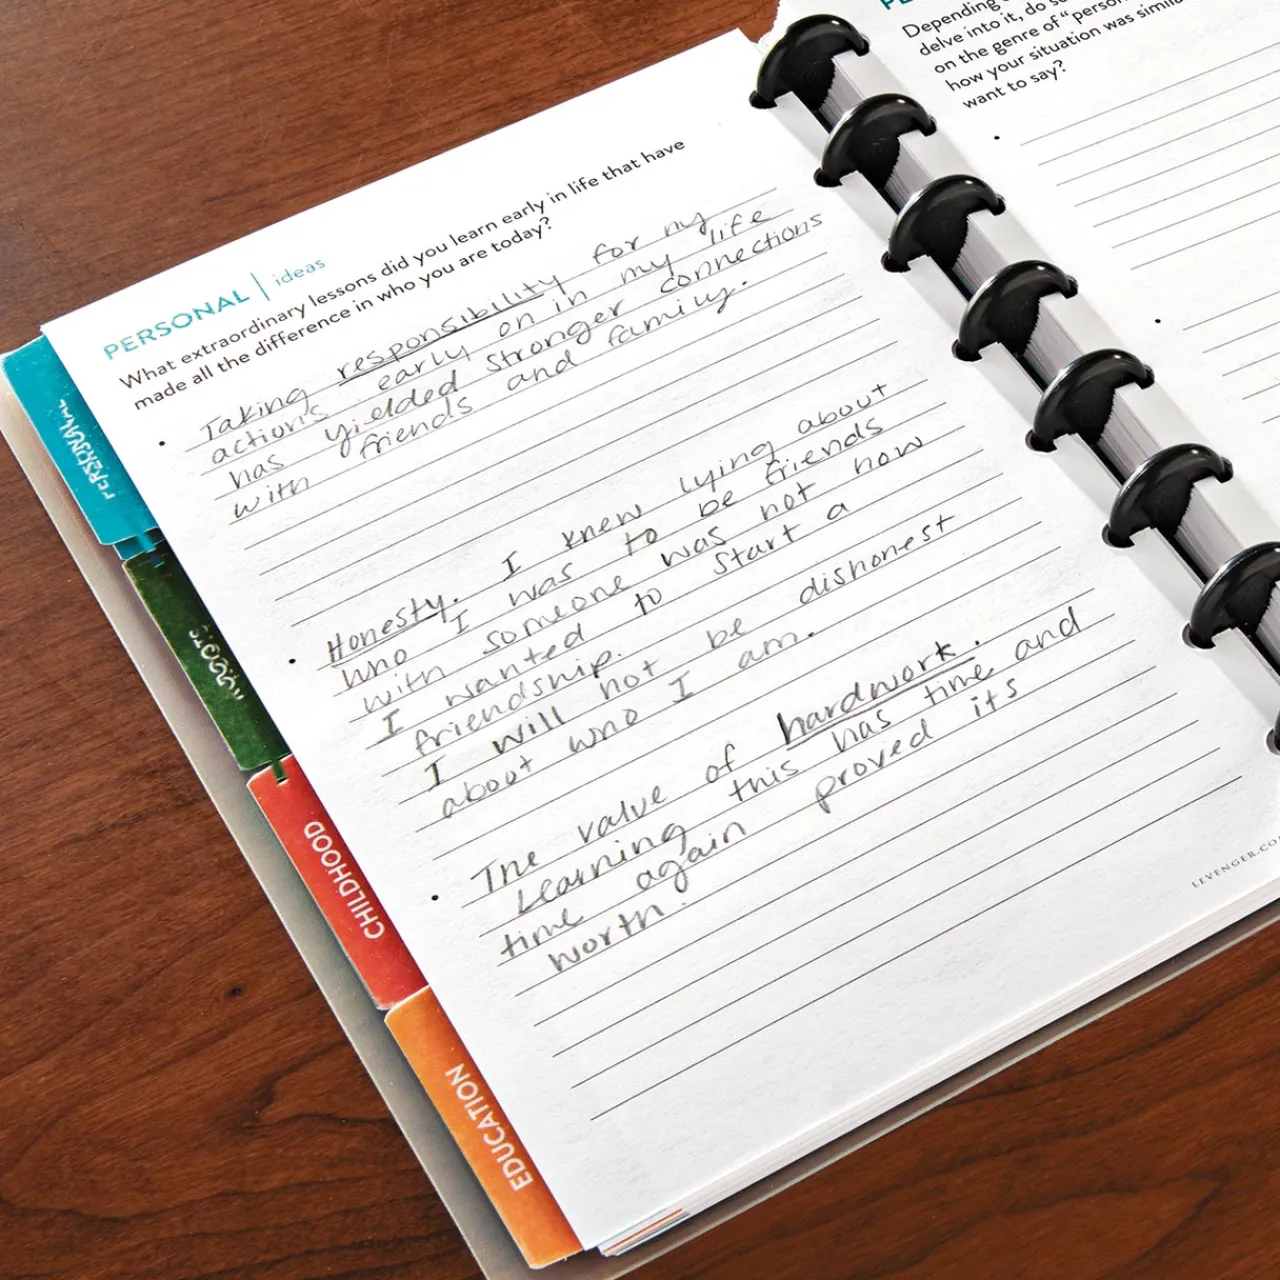 PERSONAL | ideas
What extraordinary lessons did you learn early in life that have
made all the difference in who you are today?
Taking responsibility for my
actions early on in my life
has yielded stronger connections
with friends and family.
Honesty. I knew lying about
who I was to be friends
with someone was not how
I wanted to start a
friendship.
I will not be dishonest
about who I am.
The value of hardwork.
Learning this has time and
time again proved its
worth.
LEVENGER.CO
PERSONAL
CHILDHOOD
EDUCATION
Depending
delve into it, do
on the genre of "person
how your situation was simila
want to say?